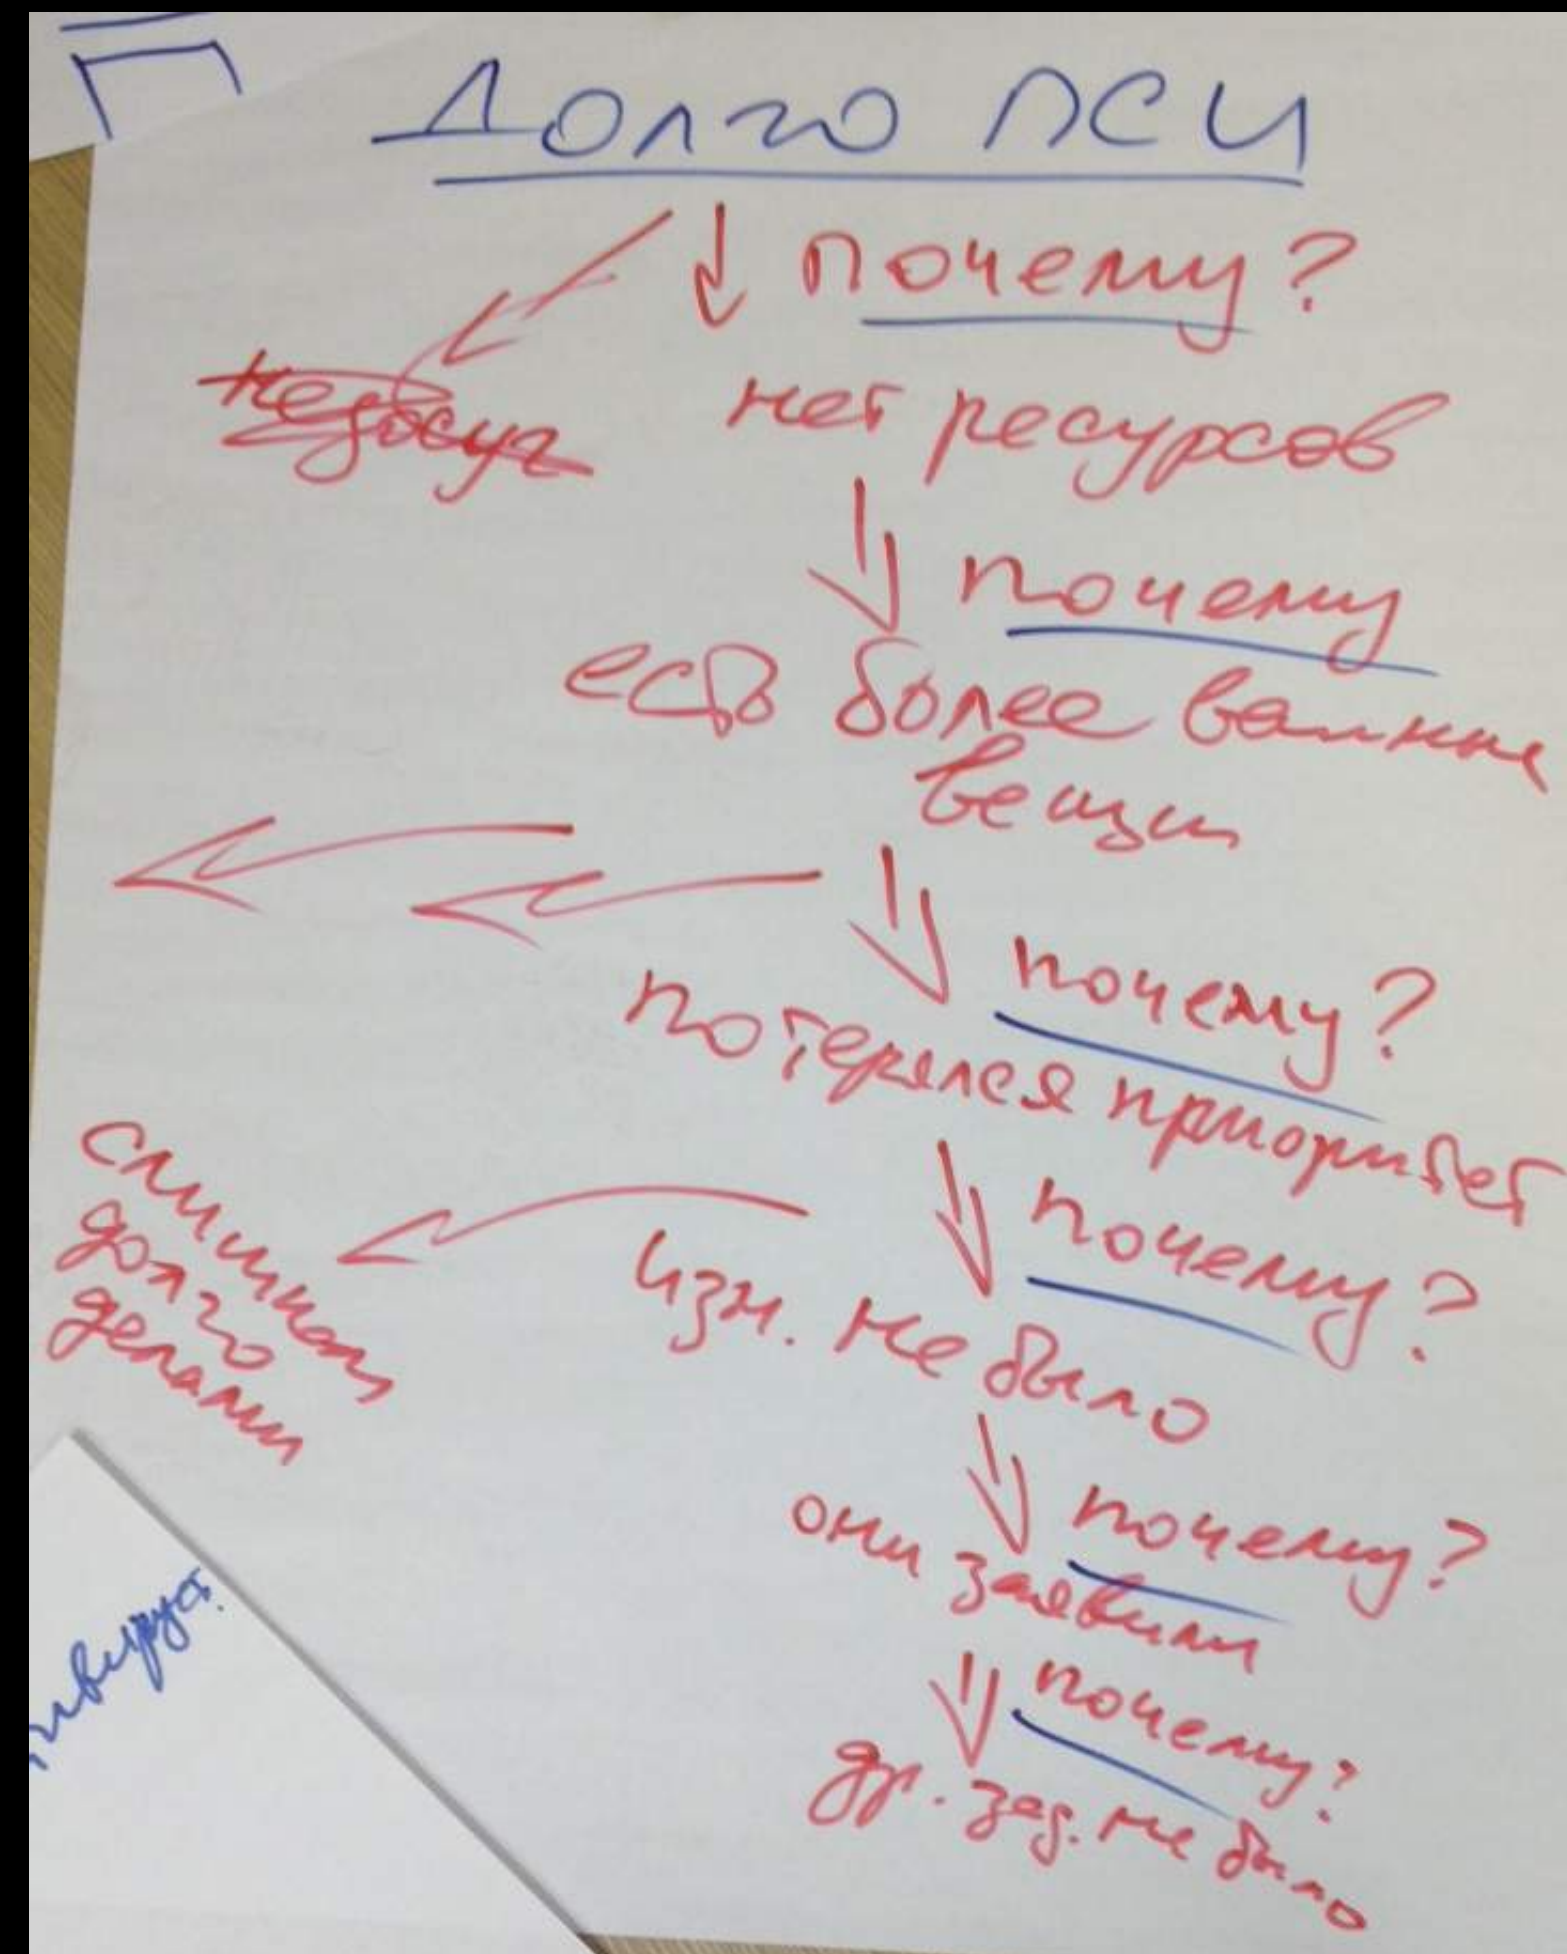 Долго ПСИ
почему?
недосуг
нет ресурсов
почему
есть более важные
вещи
почему?
потерялся приоритет
почему?
слишком
долго
делали
изн. не было
почему?
они заявили
почему?
др. зад. не было